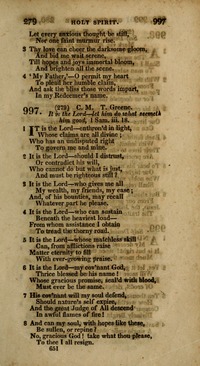 279 HOLY SPIRIT. 997
Let every anxious thought be still,
Nor one faint murmur rise.
3 Thy love can cheer the darksome gloom,
And bid me wait serene,
Till hopes and joys immortal bloom,
And brighten all the scene.
4 'My Father,'—O permit my heart
To plead her humble claim,
And ask the bliss those words impart,
In my Redeemer's name.
997. (279) C. M. T. Greene.
It is the Lord—let him do what seemeth
him good, 1 Sam. iii. 18.
1 IT is the Lord—enthron'd in light,
Whose claims are all divine;
Who has an undisputed right
To govern me and mine.
2 It is the Lord—should I distrust,
Or contradict his will,
Who cannot do but what is just,
And must be righteous still?
3 It is the Lord—who gives me all
My wealth, my friends, my ease;
And, of his bounties, may recall
Whatever part he please.
4 It is the Lord—who can sustain
Beneath the heaviest load—
From whom assistance I obtain
To tread the thorny road.
5 It is the Lord—whose matchless skill
Can, from afflictions raise
Matter eternity to fill
With ever-growing praise.
6 It is the Lord—my cov'nant God,
Thrice blessed be his name!
Whose gracious promise, seal'd with blood,
Must ever be the same.
7 His cov'nant will my soul defend,
Should nature's self expire,
And the great Judge of All descend
In awful flames of fire!
8 And can my soul, with hopes like these,
Be sullen, or repine!
No, gracious God! take what thou please,
To thee I all resign.
651